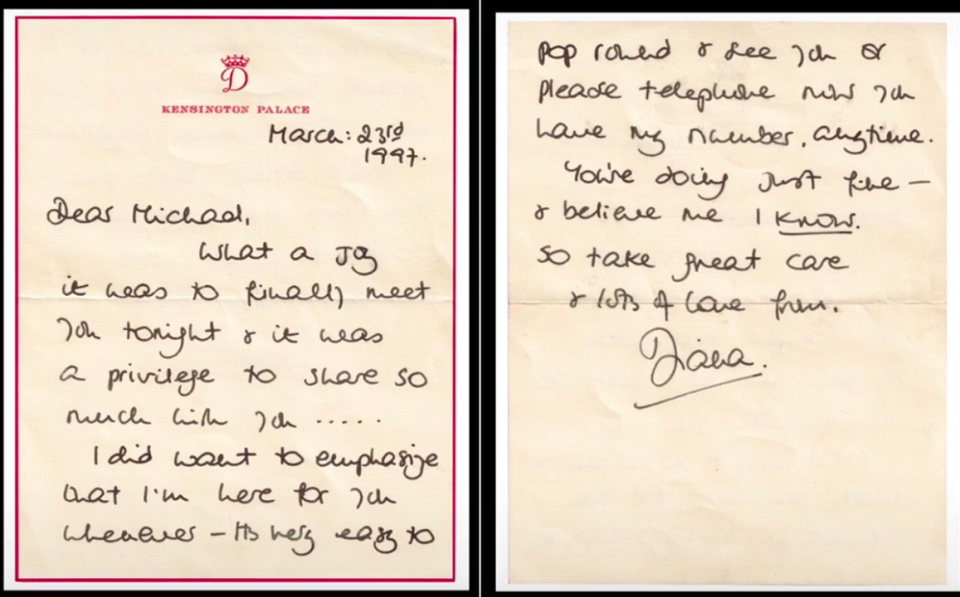 D
KENSINGTON PALACE
March: 23rd
1997.
Dear Michael,
What a joy
it was to finally meet
you tonight & it was
a privilege to share so
much with you .....
I did want to emphasize
that I'm here for you
whenever – its very easy to
pop round & see you or
please telephone now you
have my number, anytime.
You're doing just fine –
& believe me I know.
So take great care
& lots of love from.
Diana.